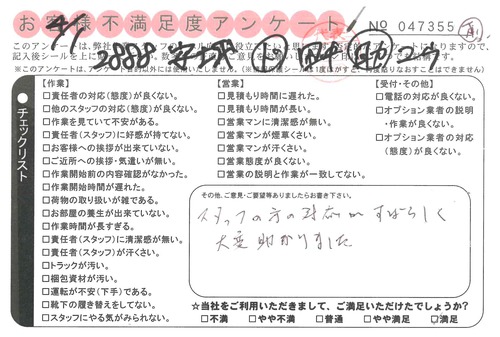 お客様不満足度アンケート
NO 047355
4/1
【作業】
□責任者の対応(態度)が良くない。
□他のスタッフの対応(態度)が良くない。
□作業を見ていて不安がある。
□責任者(スタッフ)に好感が持てない。
□お客様への挨拶が出来ていない。
□ご近所への挨拶・気遣いが無い。
□作業開始前の内容確認がなかった。
□作業開始時間が遅れた。
□荷物の取り扱いが雑である。
□お部屋の養生が出来ていない。
□作業時間が長すぎる。
□責任者(スタッフ)に清潔感が無い。
□責任者(スタッフ)が汗くさい。
□トラックが汚い。
□梱包資材が汚い。
□運転が不安(下手)である。
□靴下の履き替えをしてない。
□スタッフにやる気がみられない。
【営業】
□見積もり時間に遅れた。
□見積もり時間が長い。
□営業マンに清潔感が無い。
□営業マンが煙草くさい。
□営業マンが汗くさい。
□営業態度が良くない。
□営業の説明と作業が一致してない。
【受付・その他】
□電話の対応が良くない。
□オプション業者の説明
・作業が良くない。
□オプション業者の対応
(態度)が良くない。
チェックリスト
その他、ご意見・ご要望等ありましたらお書き下さい。
スタッフの方の対応がすばらしく
大変助かりました
☆当社をご利用いただきまして、ご満足いただけたでしょうか?
□不満 □やや不満 □普通 □やや満足 ☑満足